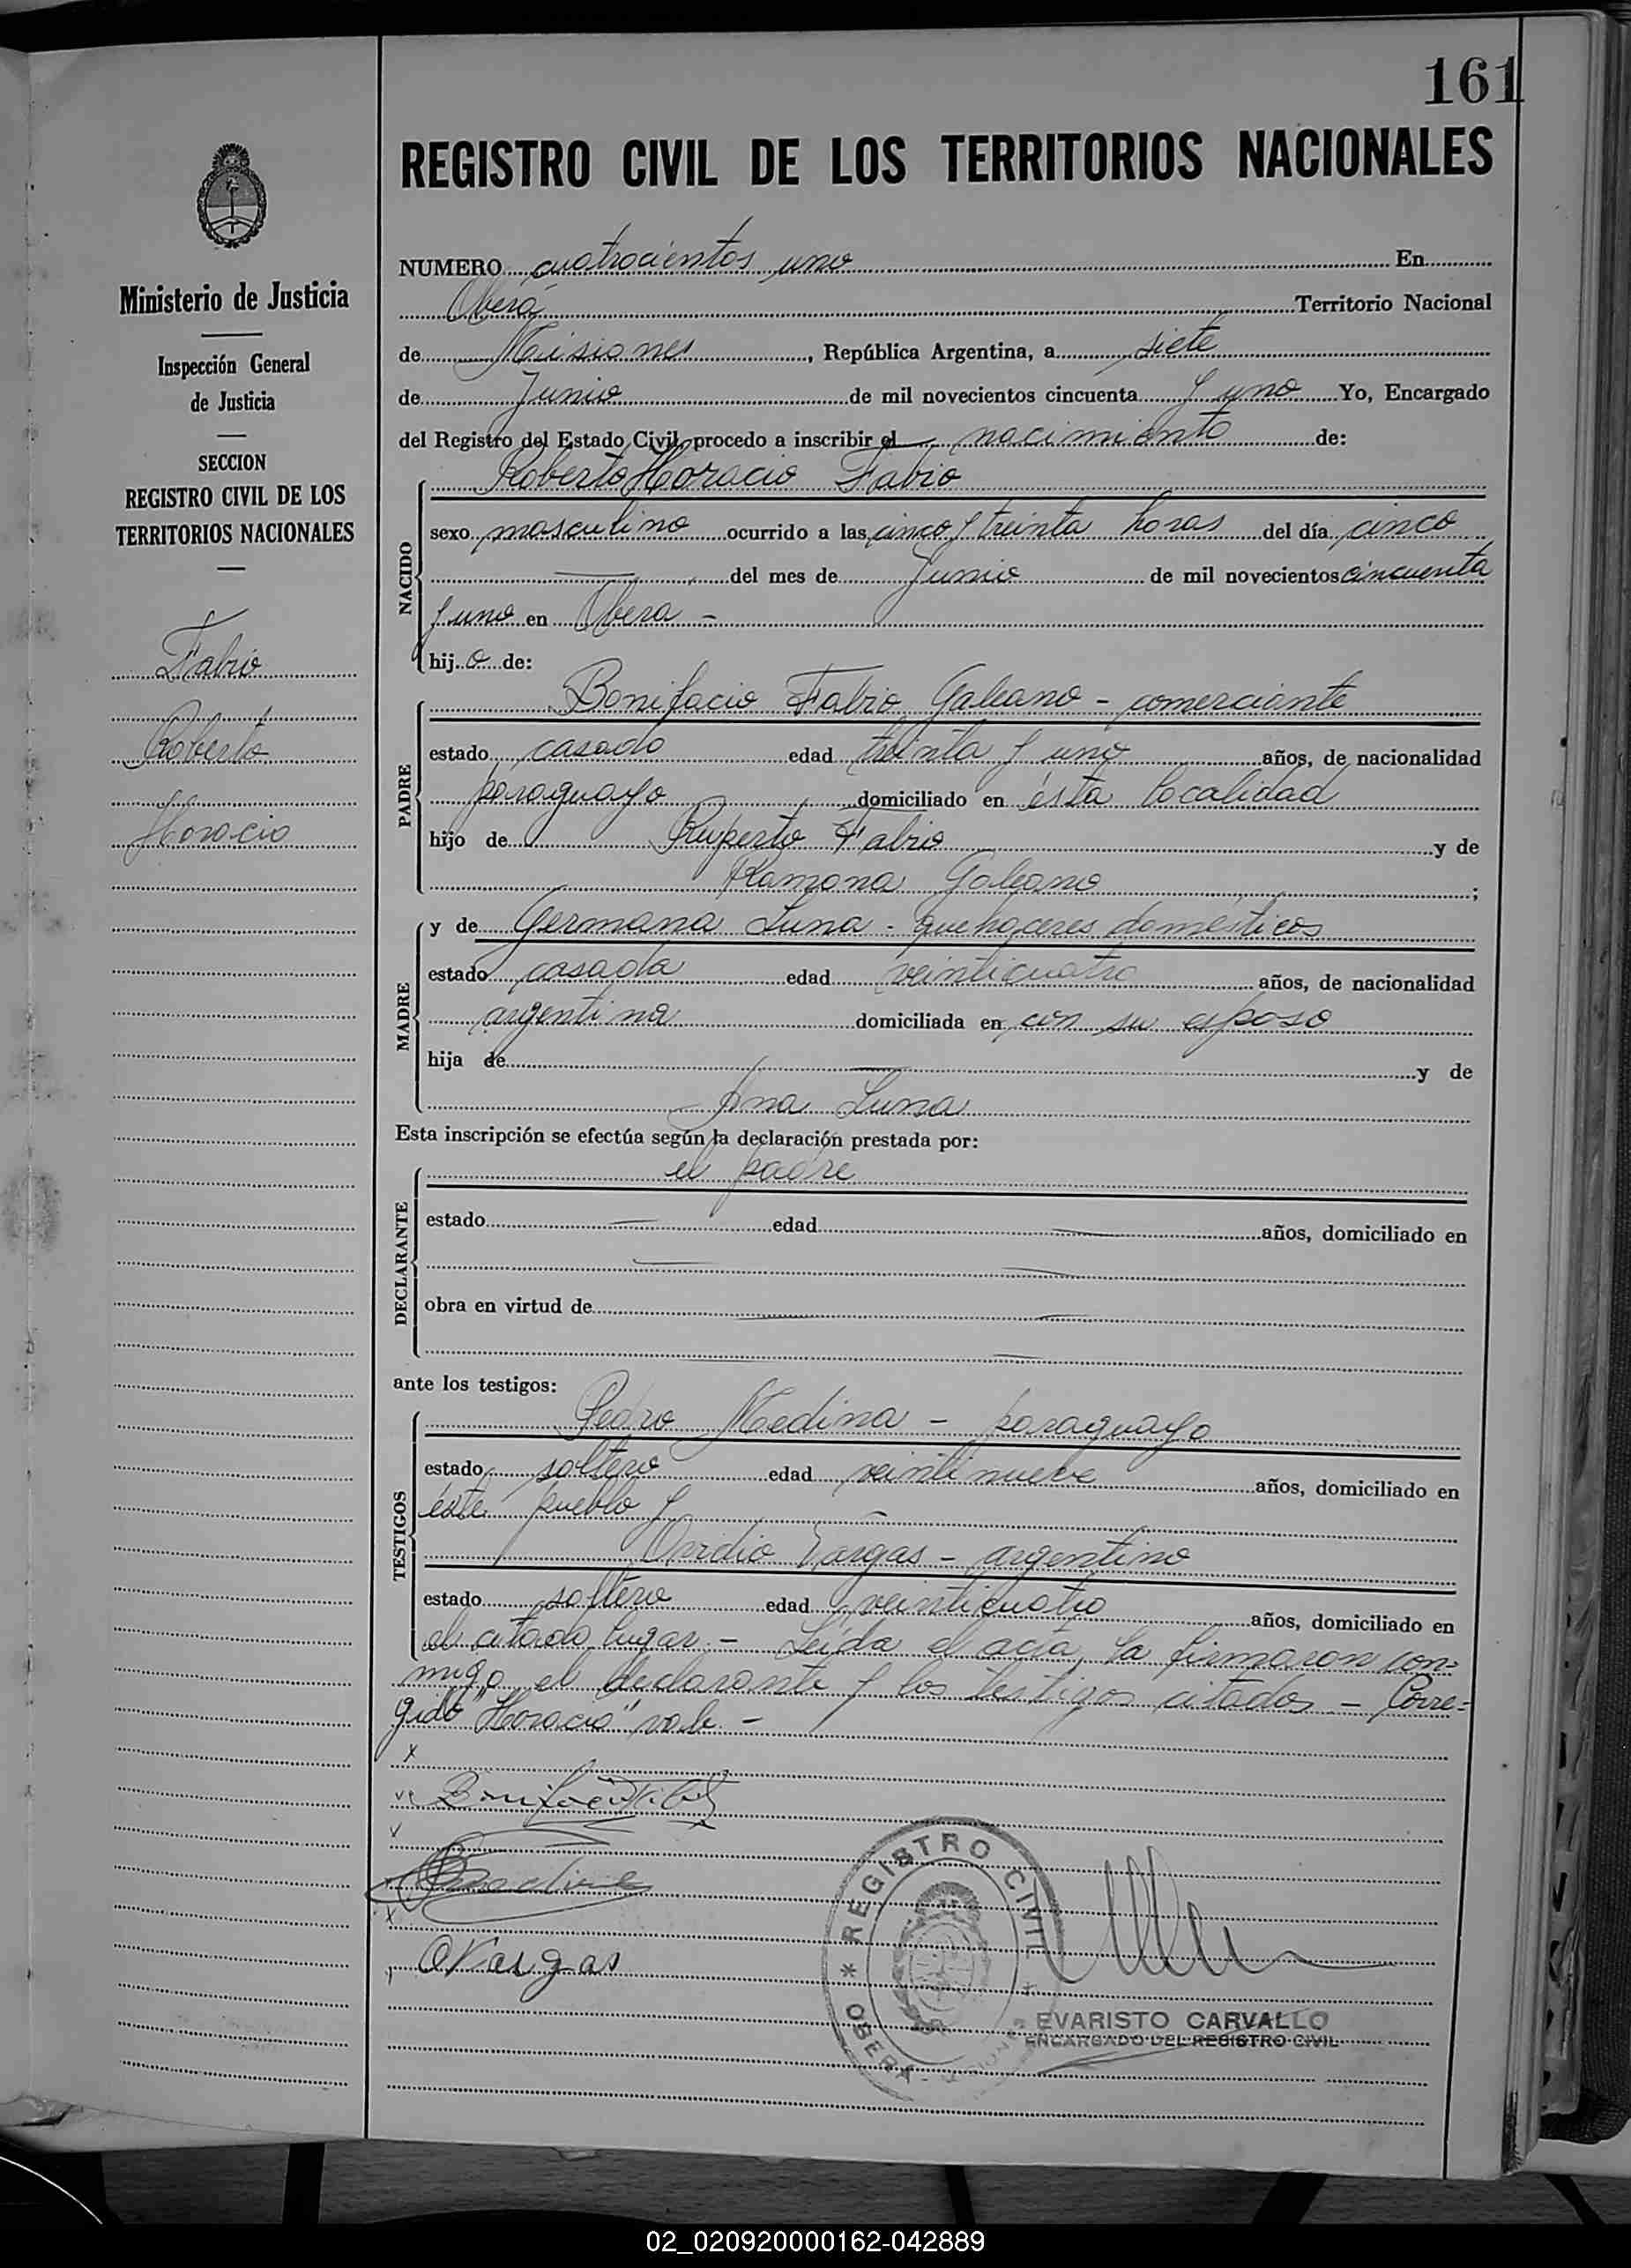 161
REGISTRO CIVIL DE LOS TERRITORIOS NACIONALES
Ministerio de Justicia
Inspección General
de Justicia
SECCION
REGISTRO CIVIL DE LOS
TERRITORIOS NACIONALES
Fabio
Roberto
Horacio
NUMERO cuatrocientos uno En
Oberá Territorio Nacional
de Misiones, República Argentina, a siete
de Junio de mil novecientos cincuenta y uno Yo, Encargado
del Registro del Estado Civil, procedo a inscribir el nacimiento de:
Roberto Horacio Fabio
NACIDO
sexo masculino ocurrido a las cinco y treinta horas del día cinco
del mes de Junio de mil novecientos cincuenta
y uno en Obera -
hijo de:
Bonifacio Fabio Galeano - comerciante
PADRE
estado casado edad treinta y uno años, de nacionalidad
paraguayo domiciliado en ésta localidad
hijo de Ruperto Fabio y de
Ramona Galeano ;
y de Germana Luna - quehaceres domésticos
MADRE
estado casada edad veinticuatro años, de nacionalidad
argentina domiciliada en con su esposo
hija de y de
Ana Luna
Esta inscripción se efectúa según la declaración prestada por:
el padre
DECLARANTE
estado edad años, domiciliado en
obra en virtud de
ante los testigos:
Pedro Medina - paraguayo
TESTIGOS
estado soltero edad veintinueve años, domiciliado en
éste pueblo y
Ovidio Vargas - argentino
estado soltero edad veinticuatro años, domiciliado en
el citado lugar. - Leída el acta, la firmaron con=
migo el declarante y los testigos citados - Corre=
gido "Horacio" vale. -
OVargas
REGISTRO CIVIL
* OBERA
EVARISTO CARVALLO
ENCARGADO DEL REGISTRO CIVIL
02_020920000162-042889